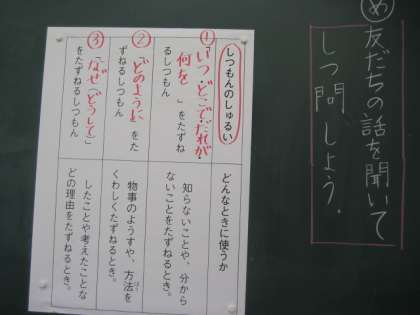 め 友だちの話を聞いて
しつ問しよう。
しつもんのしゅるい
どんなときに使うか
① 「いつ、どこで、だれが、
何を」をたずね
るしつもん
知らないことや、分から
ないことをたずねるとき。
② 「どのように」をた
ずねるしつもん
物事のようすや、方法を
くわしくたずねるとき。
③ 「なぜ(どうして)」
をたずねるしつもん
したことや考えたことな
どの理由をたずねるとき。